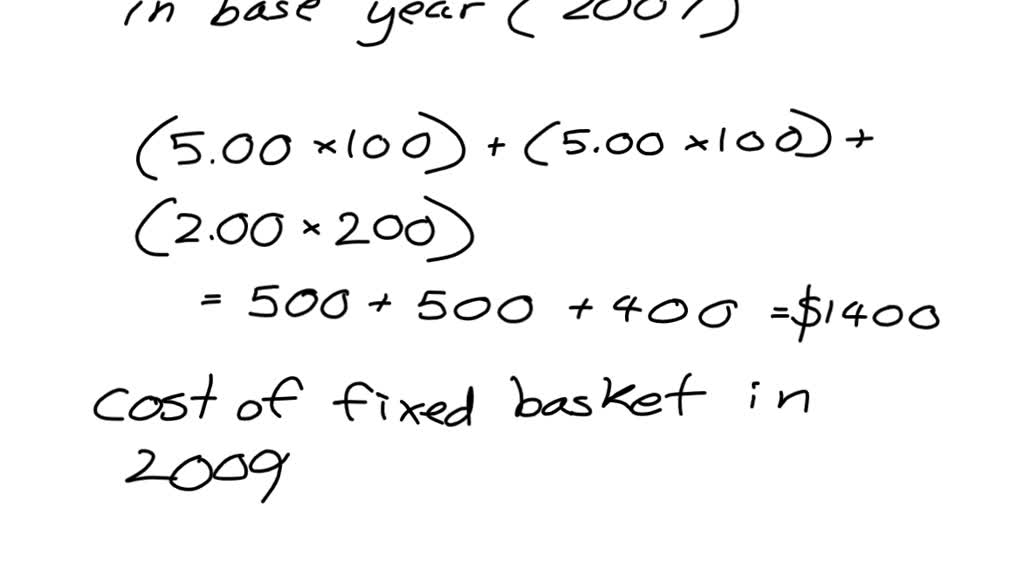 in base year (2007)
(5.00 ×100) + (5.00 ×100) +
(2.00 × 200)
= 500 + 500 + 400 = $1400
cost of fixed basket in
2009